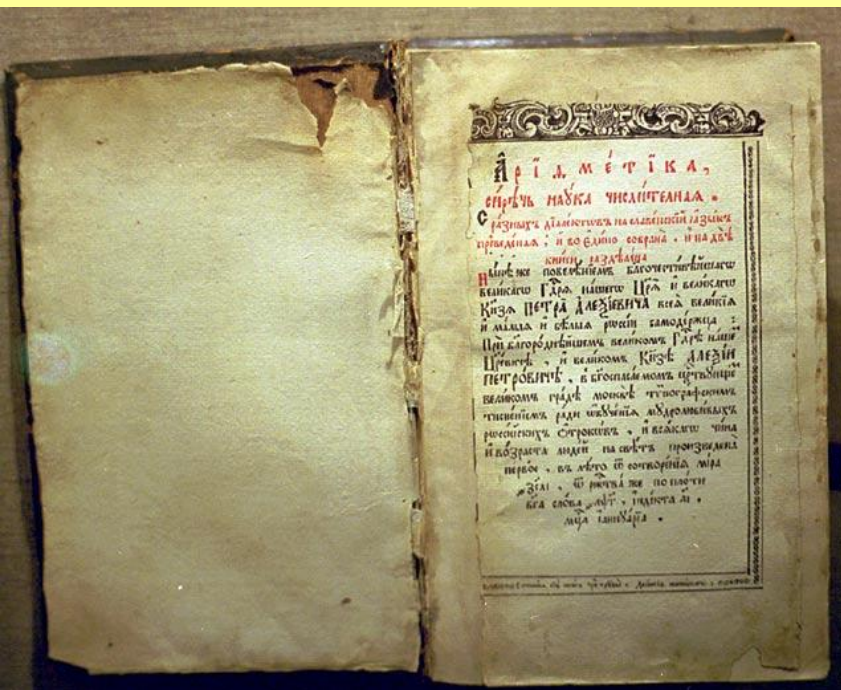 А҆рїѳме́тїка,
си́рѣчь нау́ка числи́телная.
С ра́зныхъ дїале́ктѡвъ на славе́нскїй ꙗ҆зы́къ
преведе́ная, и҆ во є҆ди́но со́брана, и҆ на двѣ̀
кни́ги раздѣле́на
Ны́нѣ же повелѣ́нїемъ благочести́вѣйшагѡ
вели́кагѡ Гдⷭ҇рѧ на́шегѡ Цр҃ѧ̀ и҆ вели́кагѡ
Кн҃зѧ ПЕТРА̀ А҆ЛЕѮІ́ЕВИЧА всеѧ̀ вели́кїѧ
и҆ ма́лыѧ и҆ бѣ́лыѧ рѡссі́и самоде́ржца :
При бл҃горо́днѣйшемъ вели́комъ Гдⷭ҇рѣ̀ на́шемъ
Цр҃е́вичѣ, и҆ вели́комъ Кн҃зѣ А҆ЛЕѮІ́И
ПЕТРО́ВИЧѢ, в бг҃оспаса́емомъ ца́рствующемъ
вели́комъ гра́дѣ москвѣ̀ тѵпогра́фскимъ
тисне́нїемъ ра́ди ѡ҆буче́нїѧ мудролюби́выхъ
рѡссі́йскихъ ѻ҆́трокѡвъ, и҆ всѧ́кагѡ чи́на
и҆ во́зраста люде́й на свѣ́тъ произведена̀
пе́рвое, въ лѣ́то ѿ сотворе́нїѧ мі́ра
҂зса҃і, ѿ ржⷭ҇тва̀ же по пло́ти
бг҃а сло́ва ҂аѱ҃г, і҆ндїкта а҃і.
мцⷭ҇а і҆аннуа́рїа.